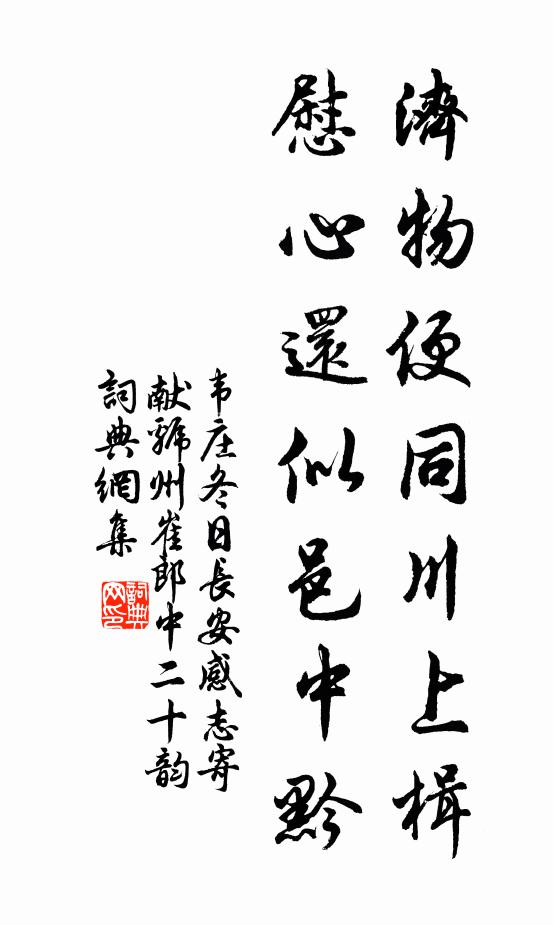 濟物便同川上楫
慰心還似邑中黔
韦庄冬日長安感志寄
献虢州崔郎中二十韵
詞典網集
詞典网印